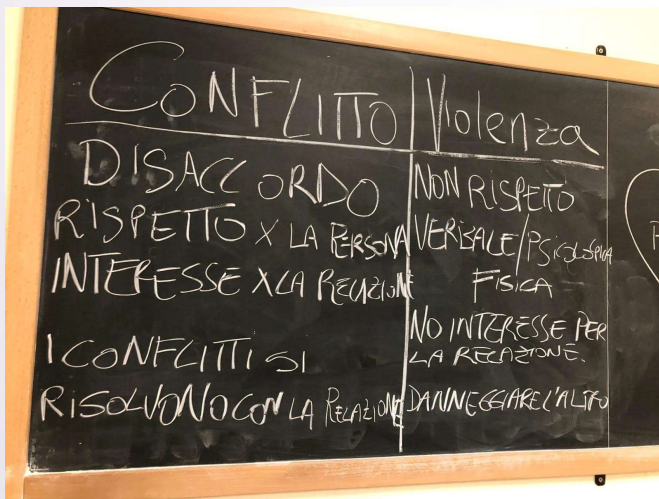 CONFLITTO
DISACCORDO
RISPETTO X LA PERSONA
INTERESSE X LA RELAZIONE
I CONFLITTI SI
RISOLVONO CON LA RELAZIONE
Violenza
NON RISPETTO
VERBALE/PSICOLOGICA
FISICA
NO INTERESSE PER
LA RELAZIONE.
DANNEGGIARE L'ALTRO